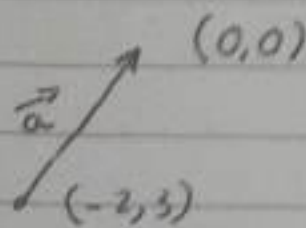 (0,0)
a⃗
(-2,3)